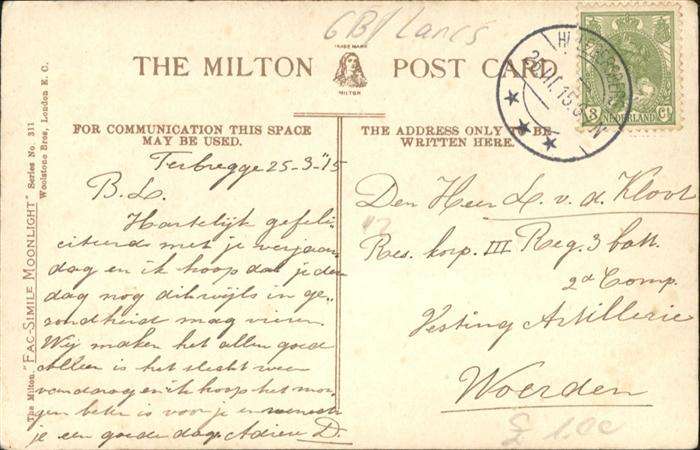 GB/Lancs
TRADE MARK
THE MILTON POST CARD
MILTON
FOR COMMUNICATION THIS SPACE
MAY BE USED.
THE ADDRESS ONLY TO BE
WRITTEN HERE.
The Milton "FAC-SIMILE MOONLIGHT" Series No. 311
Woolstone Bros, London E. C.
Terbregge 25-3-'15
B. L.
Hartelijk gefeli
citeerd met je verjaar
dag en ik hoop dat je den
dag nog dikwijls in ge
zondheid mag vieren.
Wij maken het allen goed
alleen is het slecht weer
vandaag en ik hoop het mor
gen beter is voor je en wensch
je een goede dag. Adieu D.
Den Heer L. v. d. Kloot
Res. korp. III Reg. 3 batt.
2d Comp.
Vesting Artillerie
Woerden
£ 1.00
3 Ct
NEDERLAND
15.3